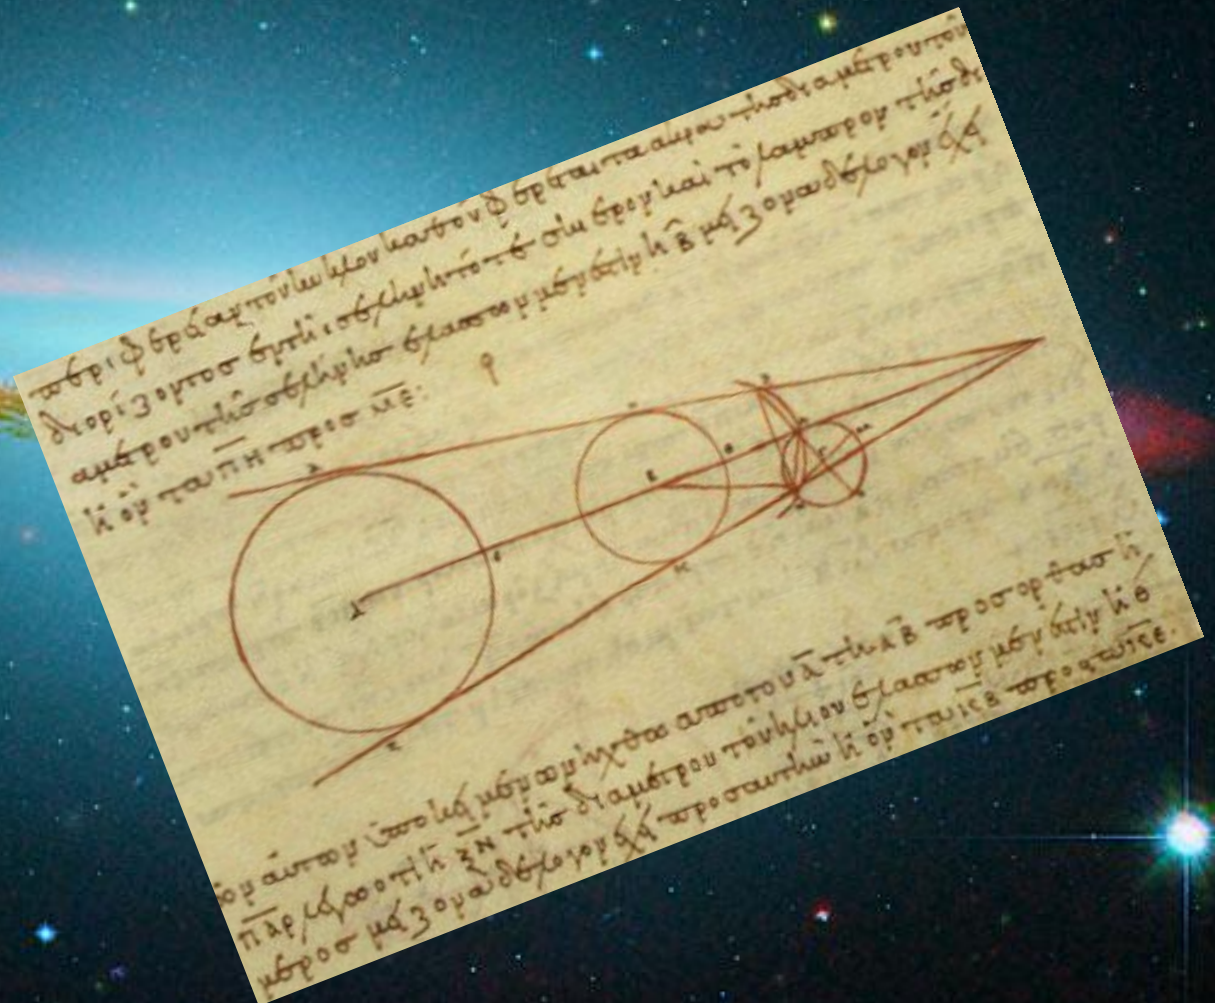 καθ' ὃν φέρεται τὰ ἄκρα τῆς διαμέτρου τοῦ
διορίζοντος ἐν τῇ σελήνῃ τό τε σκιερὸν καὶ τὸ λαμπρὸν τῆς δι
αμέτρου τῆς σελήνης ἐλάσσων μέν ἐστιν ἢ β̄ μείζονα δὲ λόγον ἔχει
ἢ ὃν τὰ π̄η̄ πρὸς μ̄ε̄:
τῶν αὐτῶν ὑποκειμένων ἤχθω ἀπὸ τοῦ λ̄ τῇ α̅β̅ πρὸς ὀρθὰς ἡ
π̅λ̅ρ̅ λέγω ὅτι ἡ ξ̅ν̅ τῆς διαμέτρου τοῦ ἡλίου ἐλάσσων μέν ἐστιν ἢ θ̄
μέρος μείζονα δὲ λόγον ἔχει πρὸς αὐτὴν ἢ ὃν τὰ κ̅β̅ πρὸς τὰ